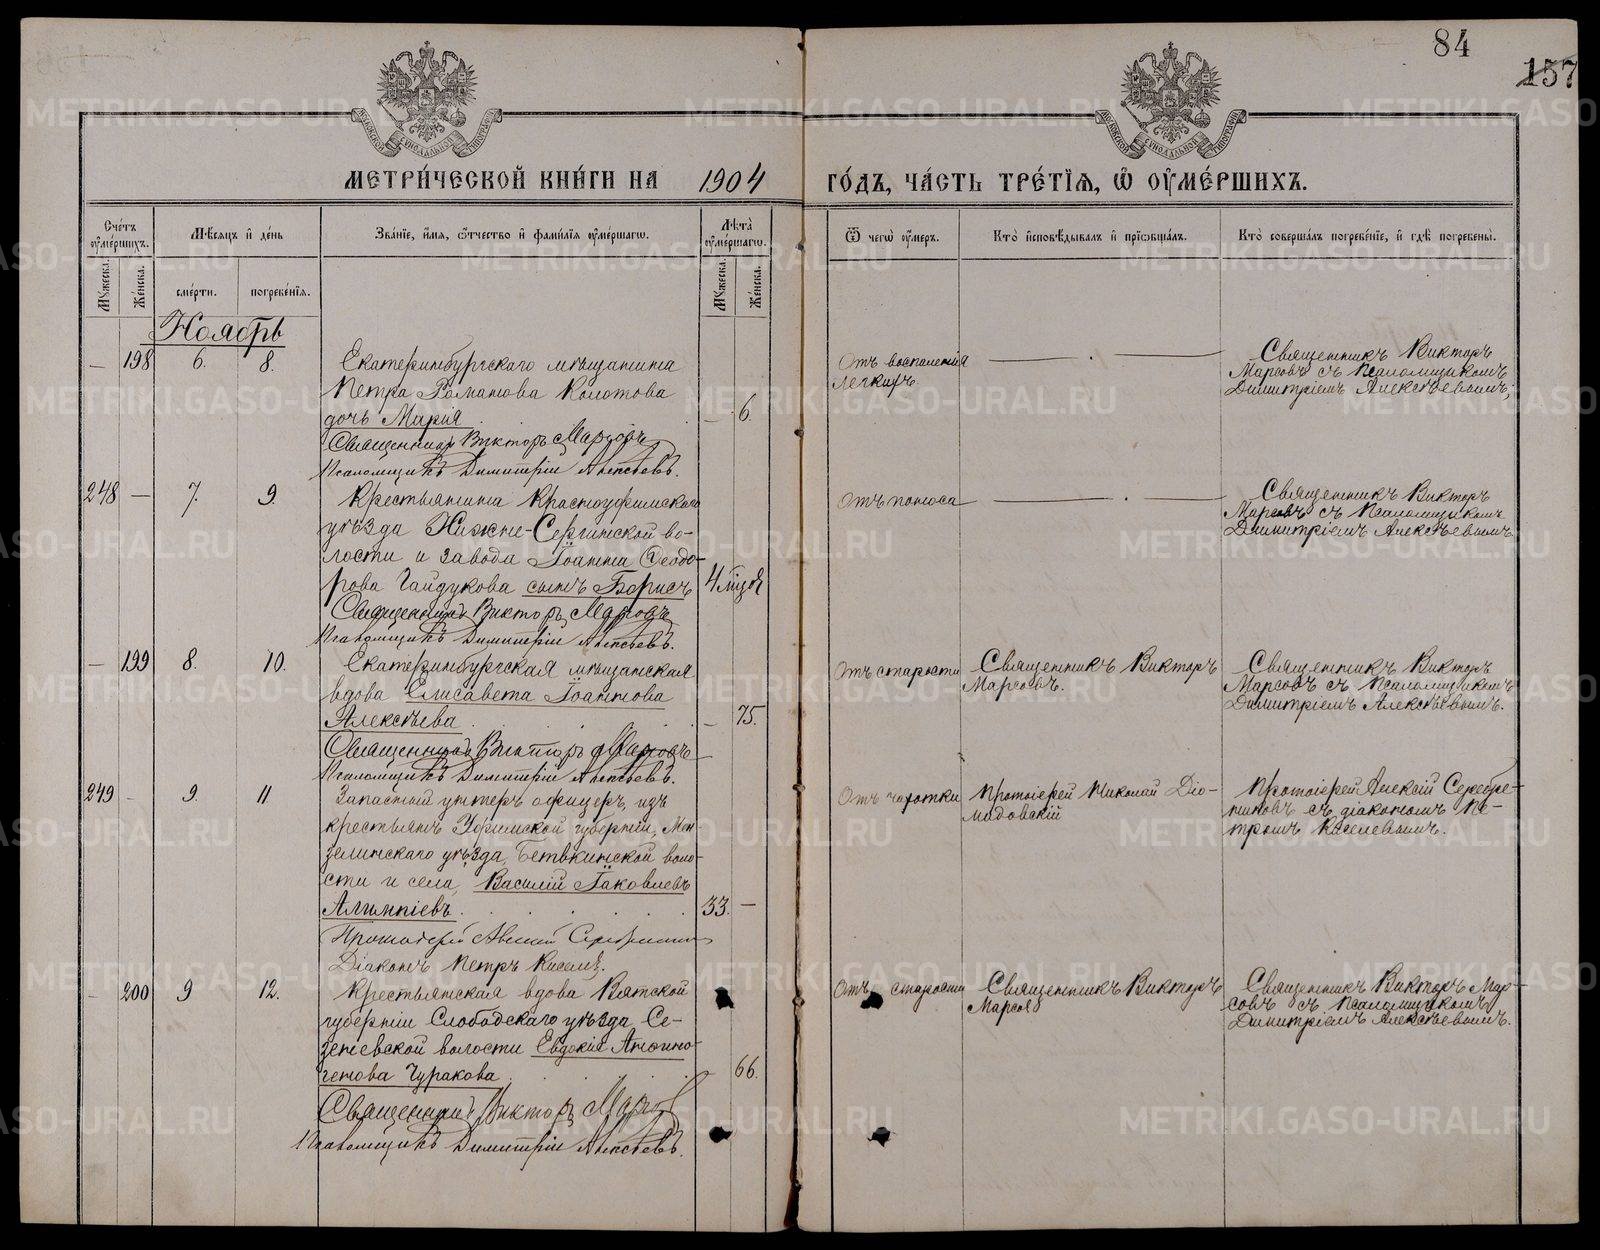 84
157
МЕТРИ́ЧЕСКОЙ КНИ́ГИ НА 1904 ГО́ДЪ, ЧА́СТЬ ТРЕ́ТІѦ, Ѿ ОУМЕ́РШИХЪ.
Счетъ оумершихъ.
Мѣсѧцъ и день
Званіе, имя, отчество и фамиліѧ оумершагѡ.
Лѣта оумершагѡ.
Ѿ чегѡ оумеръ.
Кто исповѣдывалъ и пріѡбщалъ.
Кто совершалъ погребеніе, и гдѣ погребены.
Мужеска.
Женска.
смерти.
погребеніѧ.
Мужеска.
Женска.
Ноябрь
— 198 6. 8.
Екатеринбургскаго мѣщанина
Петра Романова Колотова
дочь Марія
— 6.
Священникъ Викторъ Марсовъ
Псаломщикъ Димитрій Алексѣевъ.
Отъ воспаленія
легкихъ.
Священникъ Викторъ
Марсовъ съ псаломщикомъ
Димитріемъ Алексѣевымъ;
248 — 7. 9.
Крестьянина Красноуфимскаго
уѣзда Нижне-Сергинской во-
лости и завода Іоанна Ѳеодо-
рова Гайдукова сынъ Борисъ
4
Священникъ Викторъ Марсовъ
Псаломщикъ Димитрій Алексѣевъ.
Отъ поноса
Священникъ Викторъ
Марсовъ съ псаломщикомъ
Димитріемъ Алексѣевымъ
— 199 8. 10.
Екатеринбургская мѣщанская
вдова Елисавета Іоаннова
Алексѣева
— 75.
Священникъ Викторъ Марсовъ
Псаломщикъ Димитрій Алексѣевъ.
Отъ старости
Священникъ Викторъ
Марсовъ.
Священникъ Викторъ
Марсовъ съ псаломщикомъ
Димитріемъ Алексѣевымъ.
249 — 9. 11
Запасный унтеръ офицеръ, изъ
крестьянъ Уфимской губерніи, Мен-
зелинскаго уѣзда, Бетькинской воло-
сти и села, Василій Іаковлевъ
Алимпіевъ
33. —
Протоіерей Алексій Серебренниковъ
Діаконъ Петръ Киселевъ.
Отъ чахотки
Протоіерей Николай Діо-
мидовскій
Протоіерей Алексій Серебре-
никовъ съ діакономъ Пе-
тромъ Киселевымъ.
— 200 9 12.
Крестьянская вдова Вятской
губерніи Слободскаго уѣзда Се-
зеневской волости Евдокія Анѳино-
генова Чуракова
66.
Священникъ Викторъ Марсовъ
Псаломщикъ Димитрій Алексѣевъ.
Отъ старости
Священникъ Викторъ
Марсовъ
Священникъ Викторъ Мар-
совъ съ псаломщикомъ
Димитріемъ Алексѣевымъ.
METRIKI.GASO-URAL.RU